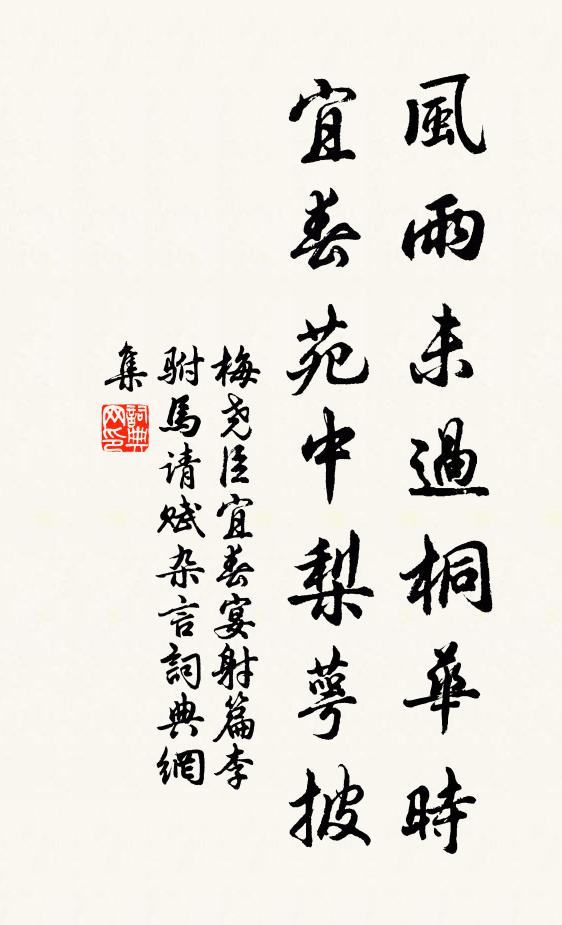 風雨未過桐華時
宜春苑中梨萼披
梅堯臣宜春宴射篇李
駙馬请赋杂言詞典網
集
詞典网印